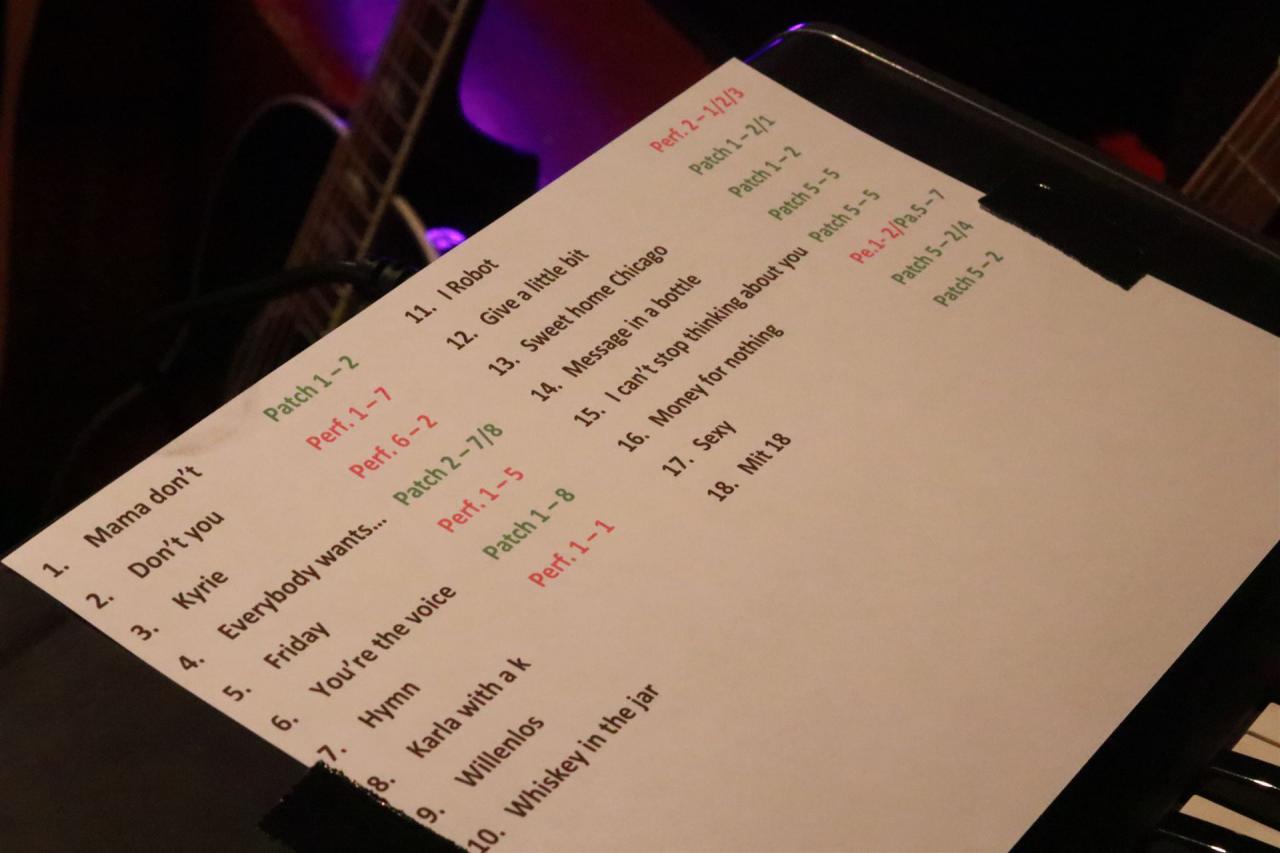 1. Mama don't Patch 1 – 2
2. Don't you Perf. 1 – 7
3. Kyrie Perf. 6 – 2
4. Everybody wants... Patch 2 – 7/8
5. Friday Perf. 1 – 5
6. You're the voice Patch 1 – 8
7. Hymn Perf. 1 – 1
8. Karla with a k
9. Willenlos
10. Whiskey in the jar
11. I Robot Perf. 2 – 1/2/3
12. Give a little bit Patch 1 – 2/1
13. Sweet home Chicago Patch 1 – 2
14. Message in a bottle Patch 5 – 5
15. I can't stop thinking about you Patch 5 – 5
16. Money for nothing Pe.1- 2/Pa.5 – 7
17. Sexy Patch 5 – 2/4
18. Mit 18 Patch 5 – 2